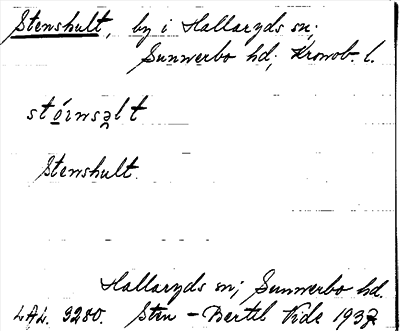 Stenshult, by i Hallaryds sn;
Sunnerbo hd; Kronob. l.
Stenshult.
Hallaryds sn; Sunnerbo hd.
LAL. 3280. Sten-Bertil Vide 1937